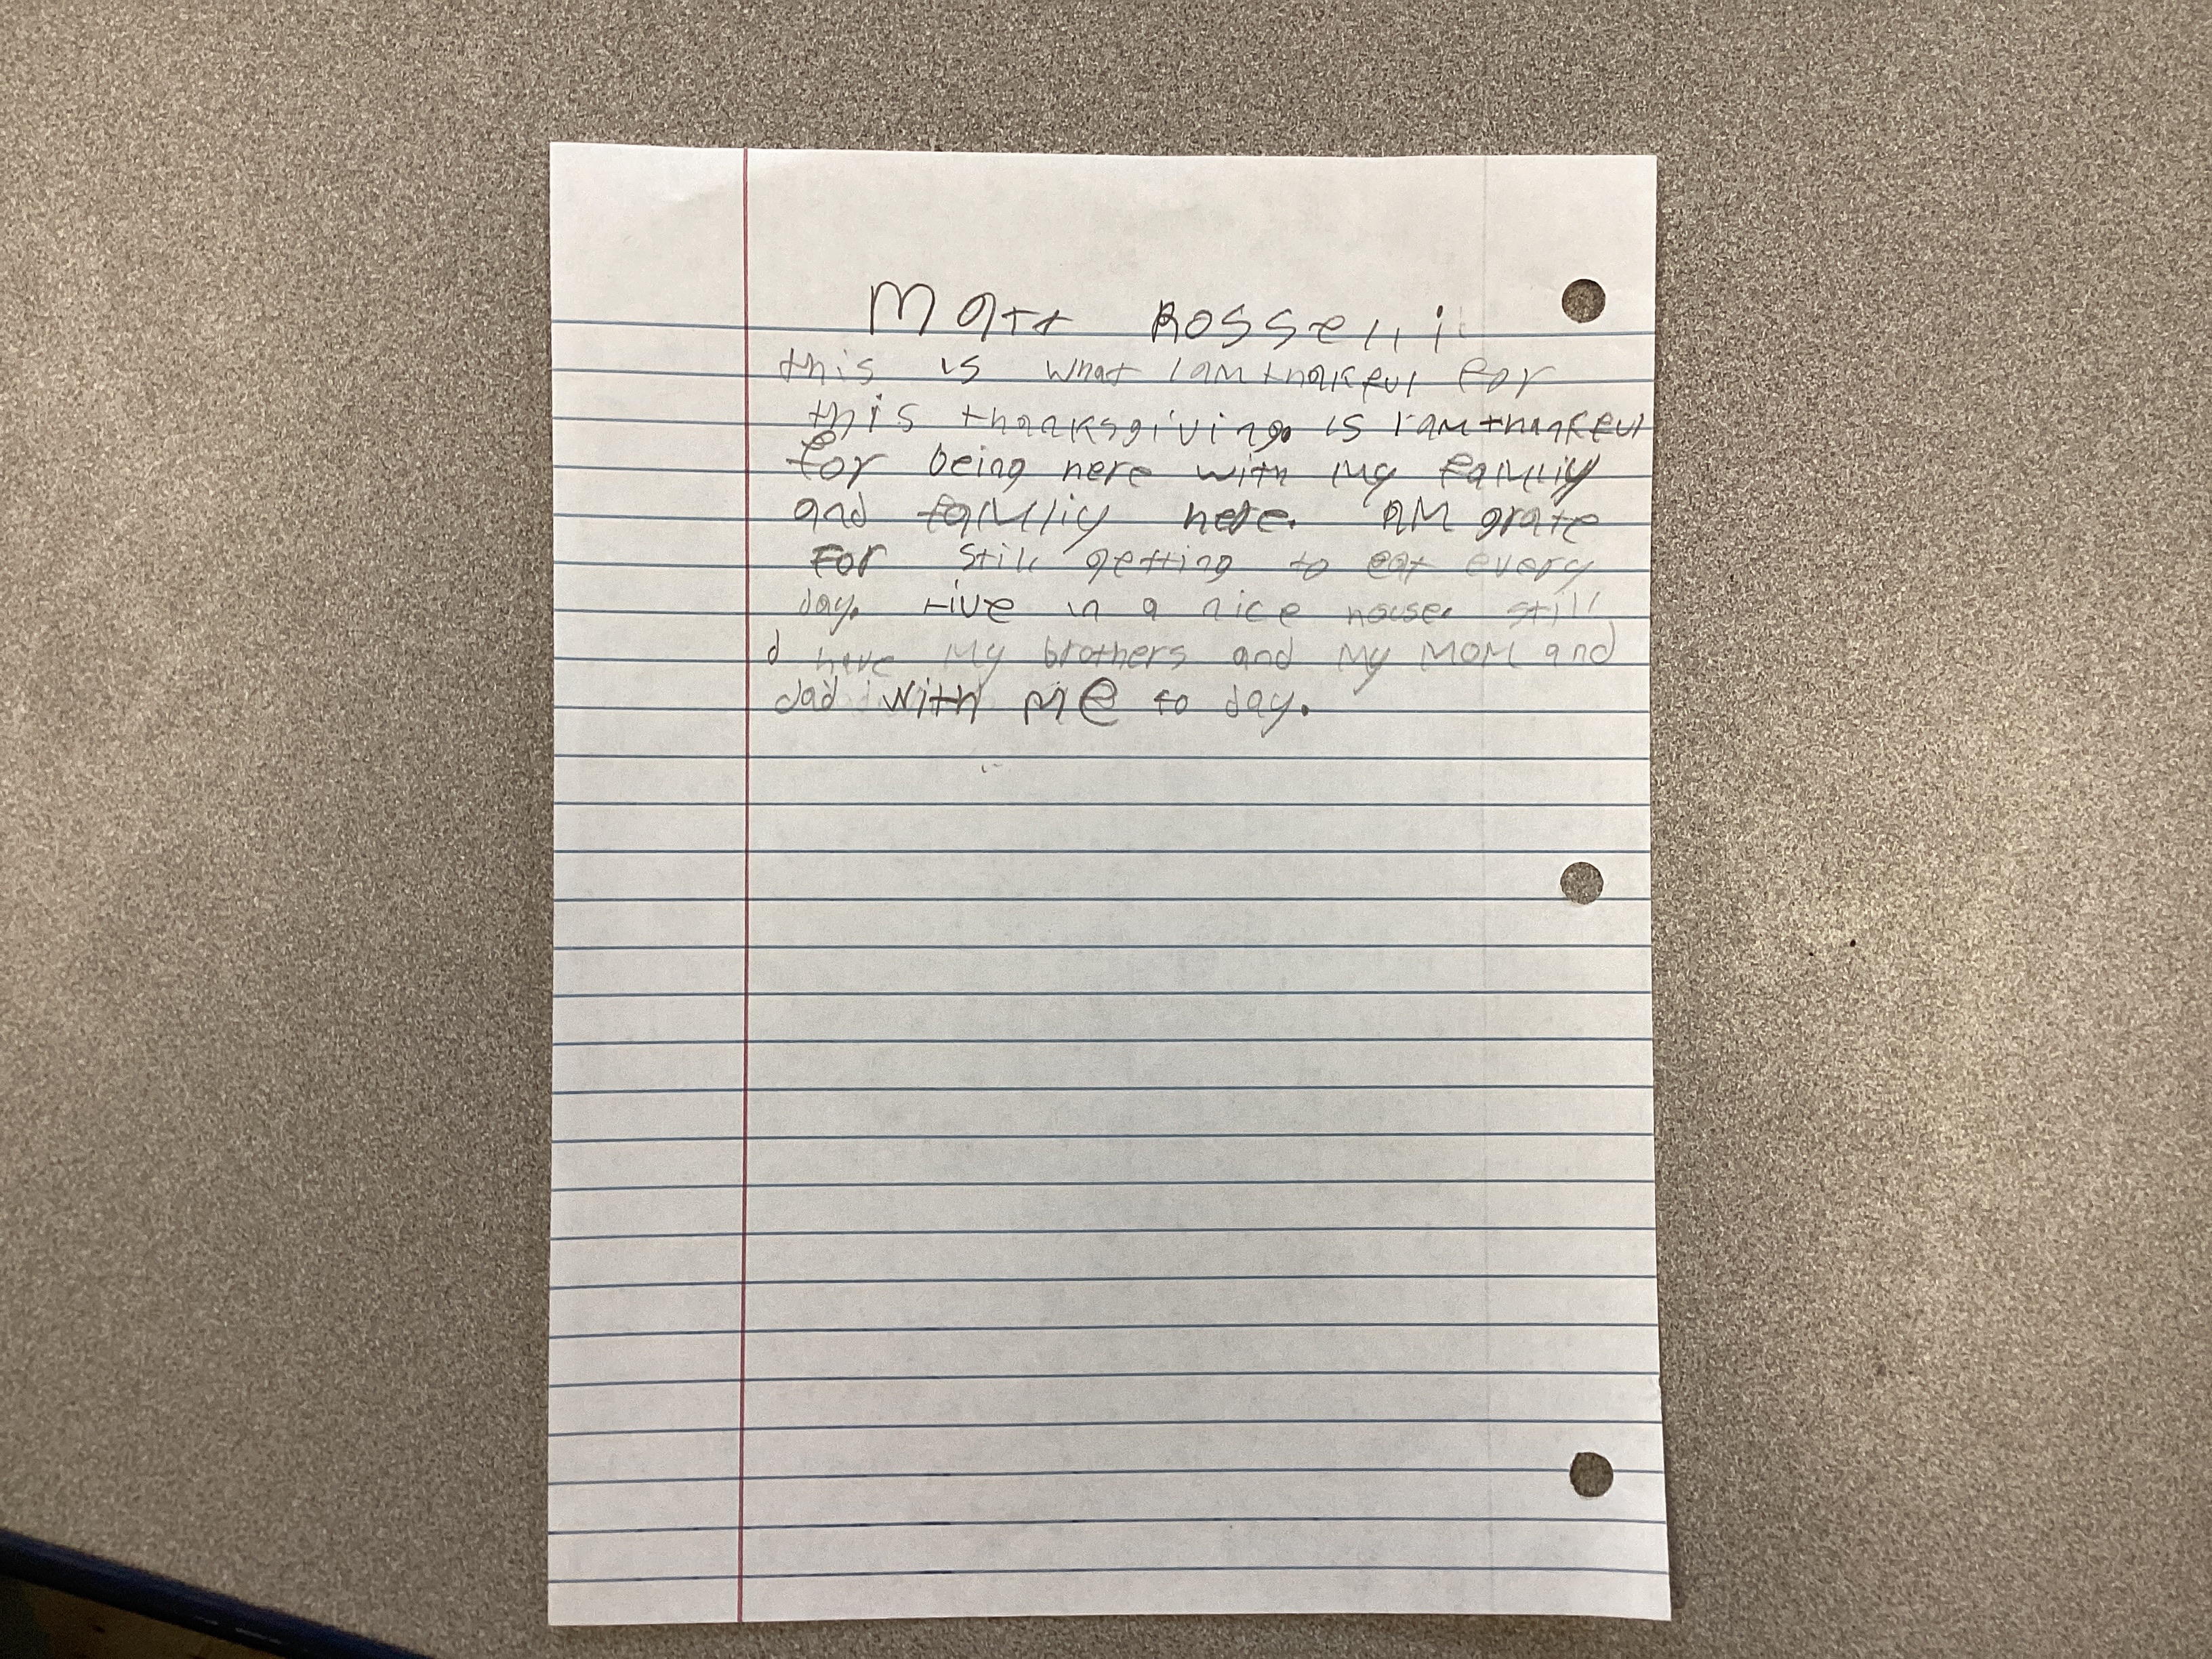 Matt Rosselli
this is what I am thakful for
this thanksgiving. is I am thankful
for being here with my famliy
and famliy here. AM grate
For still getting to eat every
day. Live in a nice house. still
d have My brothers and My MOM and
dad with me to day.